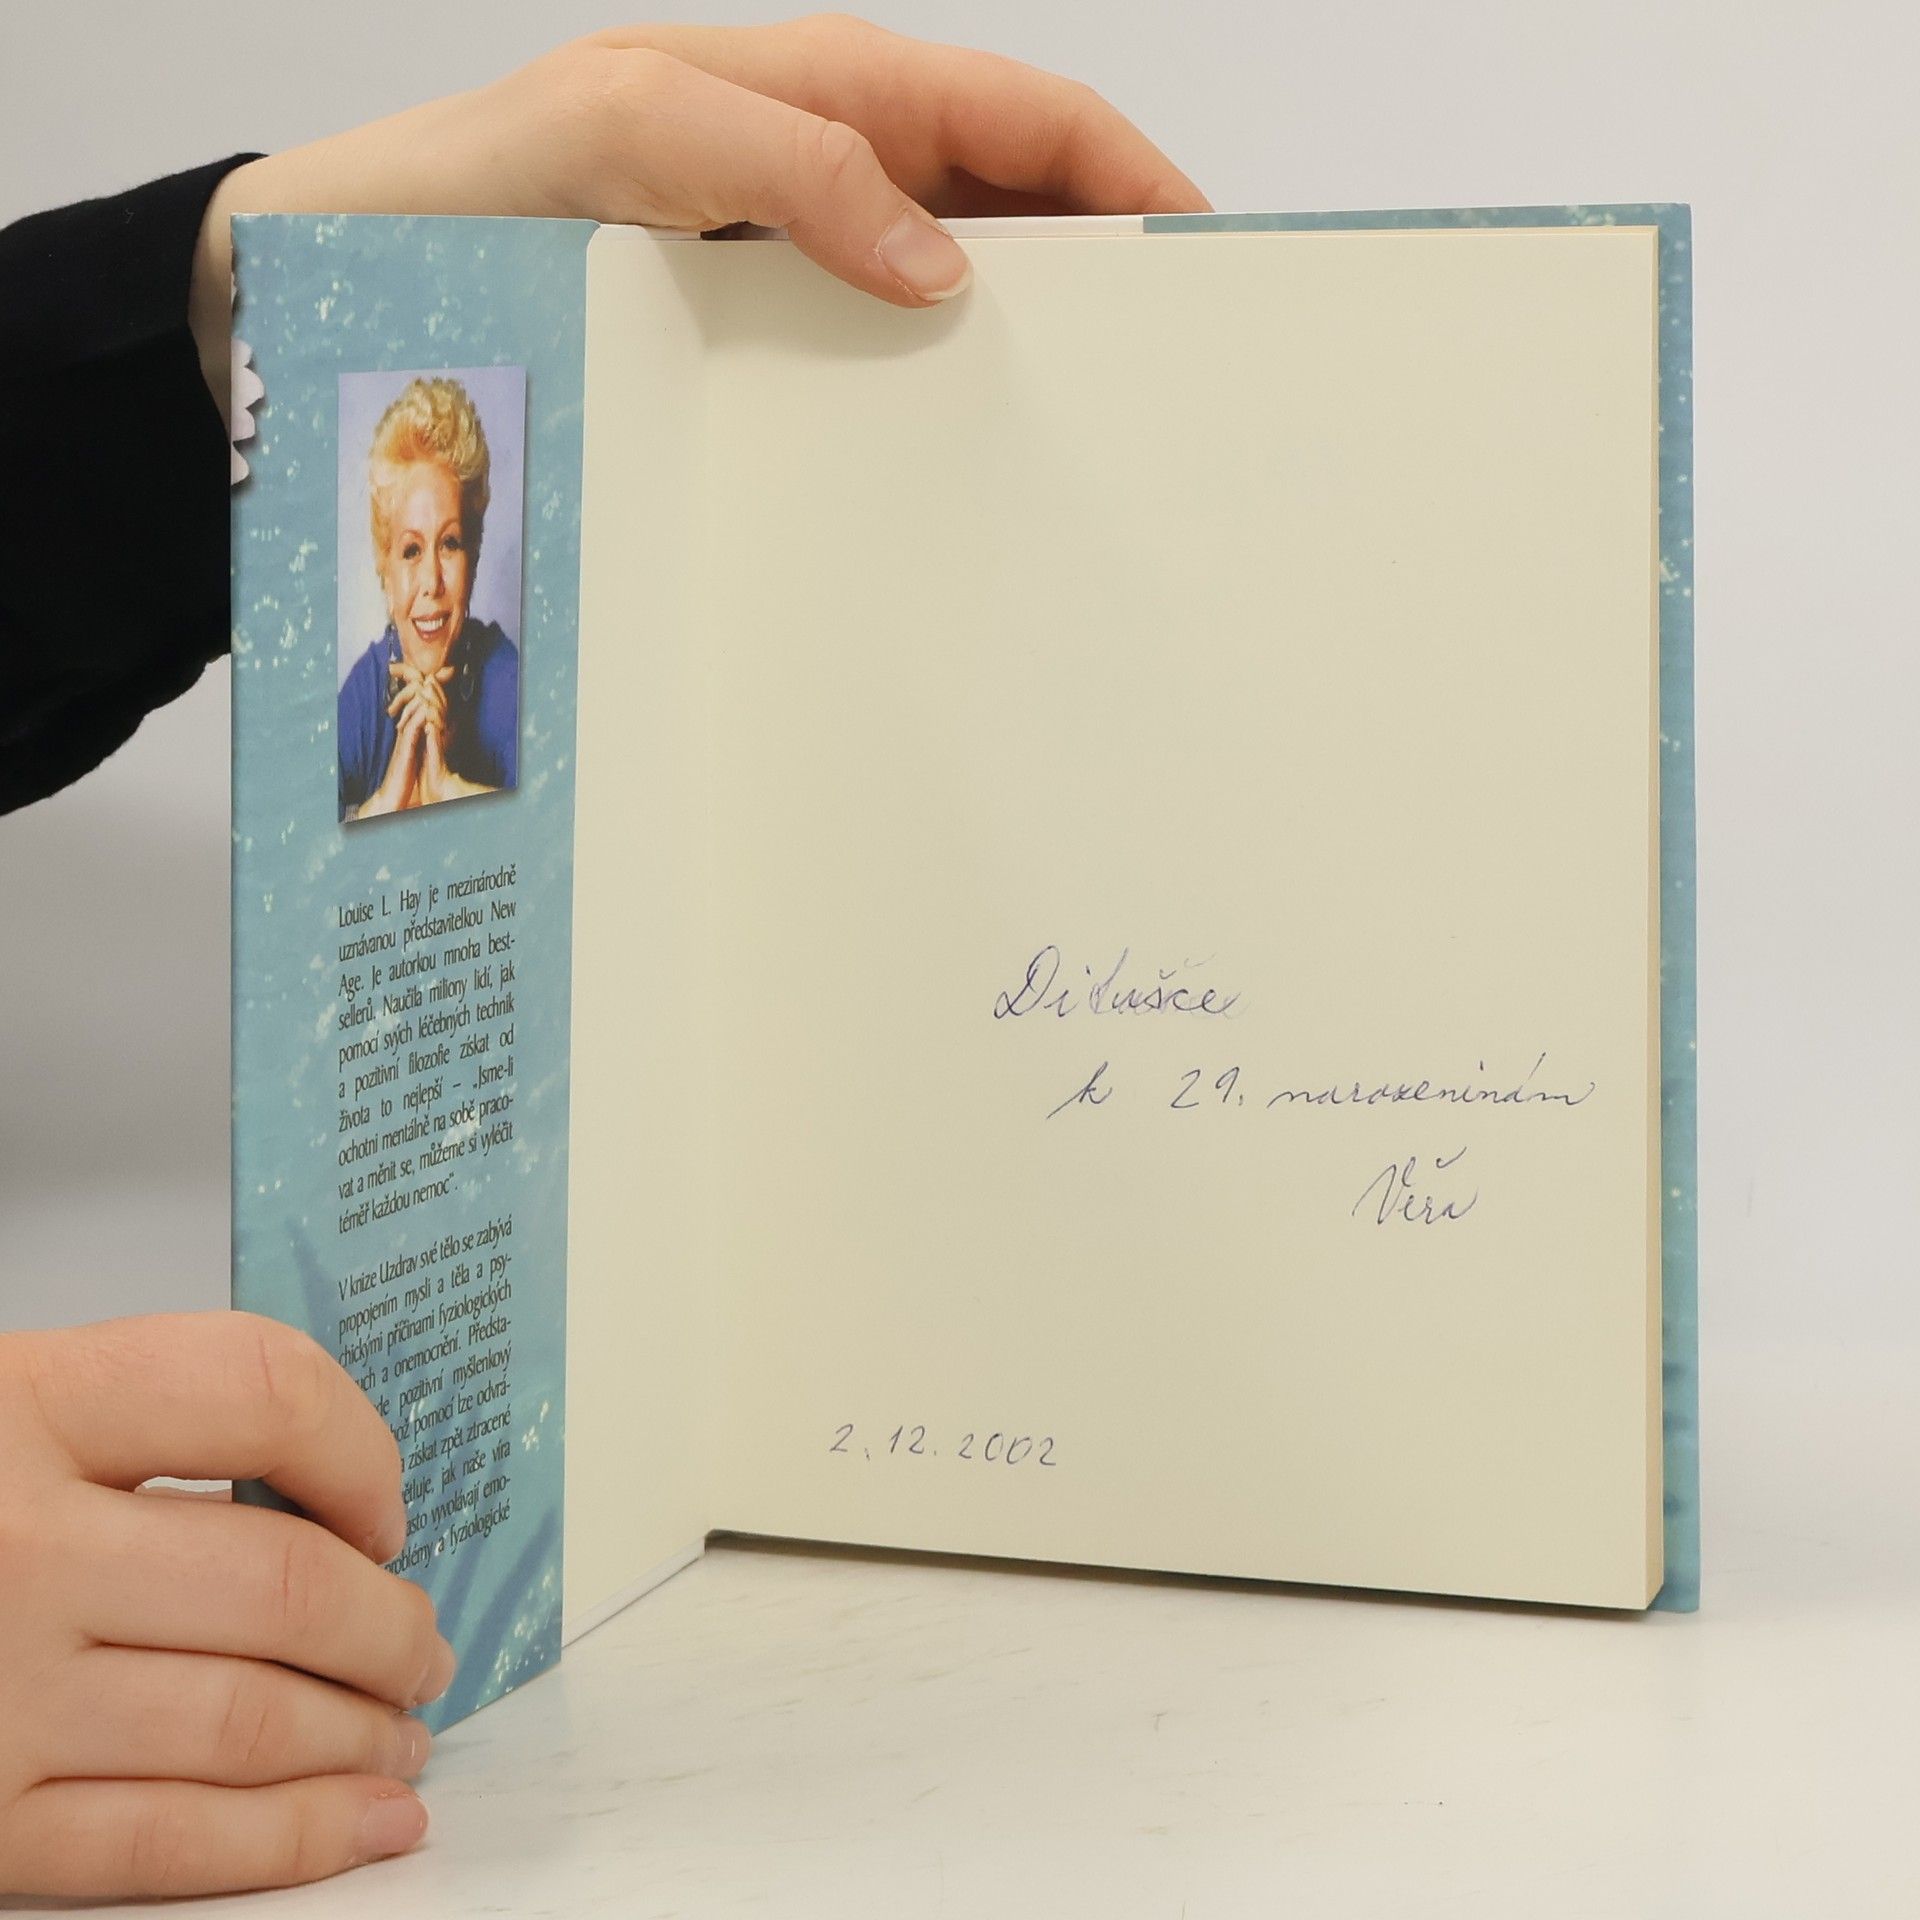 Louise L. Hay je mezinárodně
uznávanou představitelkou New
Age. Je autorkou mnoha best-
sellerů. Naučila miliony lidí, jak
pomocí svých léčebných technik
a pozitivní filozofie získat od
života to nejlepší – „Jsme-li
ochotni mentálně na sobě praco-
vat a měnit se, můžeme si vyléčit
téměř každou nemoc“.
V knize Uzdrav své tělo se zabývá
propojením mysli a těla a psy-
chickými příčinami fyziologických
a onemocnění. Předsta-
pozitivní myšlenkový
pomocí lze odvrá-
a získat zpět ztracené
jak naše víra
vyvolávají emo-
problémy a fyziologické
Ditušce
k 29. narozeninám
Věra
2. 12. 2002